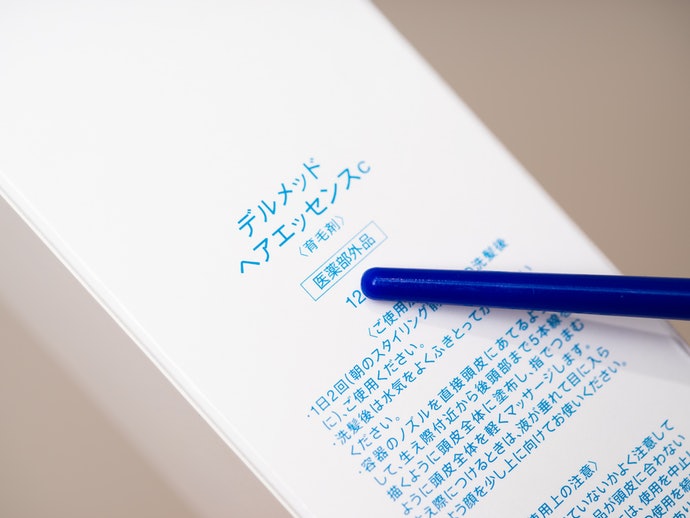 デルメッド
ヘアエッセンスC
〈育毛剤〉
医薬部外品
12
〈ご使用
洗髪後
・1日2回(朝のスタイリング
に)、ご使用ください。
・洗髪後は水気をよくふきとってか
ください。
・容器のノズルを直接頭皮にあてるよ
して、生え際付近から後頭部まで5本線を
描くように頭皮全体に塗布し、指でつまむ
ように頭皮全体を軽くマッサージします。
え際につけるときは、液が垂れて目に入ら
よう顔を少し上に向けてお使いください。
使用上の注意〉
ていないかよく注意して
品が頭皮に合わない
は、使用を中止
使用を続